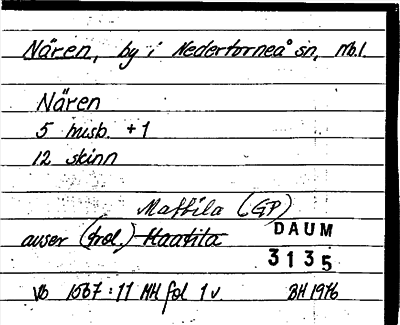 Nären, by i Nedertorneå sn, Nb.l.
Nären
5 husb. + 1
12 skinn
Mattila (GP)
avser (trol.) Haatila
DAUM
3135
Vb 1567:11 MH fol 1v BH 1976